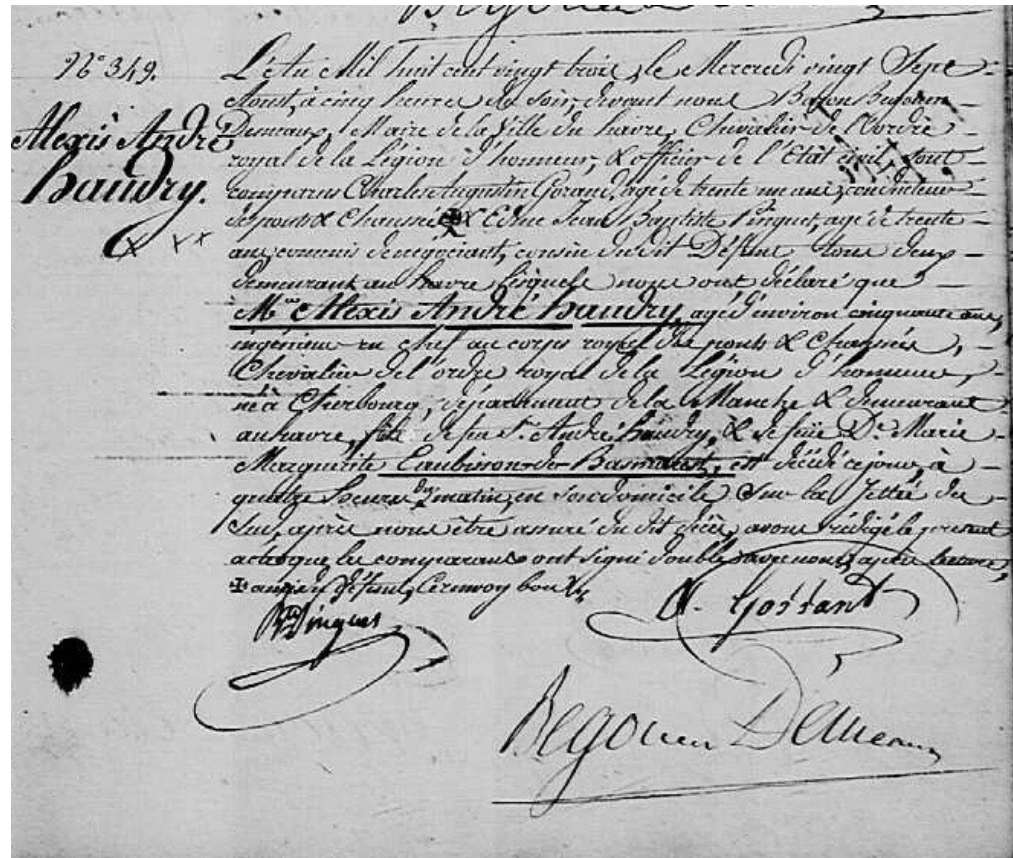 N° 349.
Alexis André
haudry.
L'An Mil huit cent vingt trois, le Mercredi vingt Sept
Aoust, à cinq heures du Soir, devant nous Baron Begouen
Demeaux, Maire de la Ville du havre, Chevalier de l'ordre
royal de la Légion d'honneur, & officier de l'Etat civil, sont
comparus Charles Augustin agé de trente un ans, conducteur
des ponts & Chaussées & Edme Jean Baptiste Pinquet, agé de trente
ans, commis de négociant, cousin du dit Défunt, tous deux
demeurant au havre, lesquels nous ont déclaré que
Mr. Alexis André haudry, agé d'environ cinquante ans,
ingénieur en chef au corps royal des ponts & Chaussées,
Chevalier de l'ordre royal de la Légion d'honneur,
né à Cherbourg, département de la Manche & demeurant
au havre, fils de feu Sr. André haudry, & de feüe De. Marie
Marguerite est décédé ce jour, à
quatre heures du matin, en son domicile Sur la Jettée du
Sud, après nous être assuré du dit décès, avons rédigé le présent
acte que les comparans ont signé double avec nous, après lecture,
ami du défunt, Ce renvoy bon
Pinquet
Begouen Demeaux